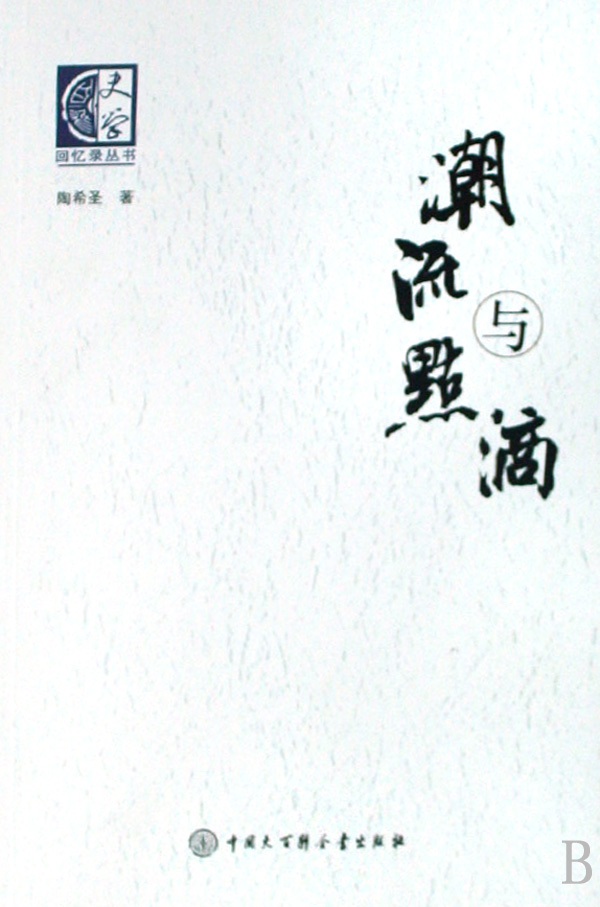 史学
回忆录丛书
陶希圣 著
潮流
与
點滴
中国大百科全书出版社
B